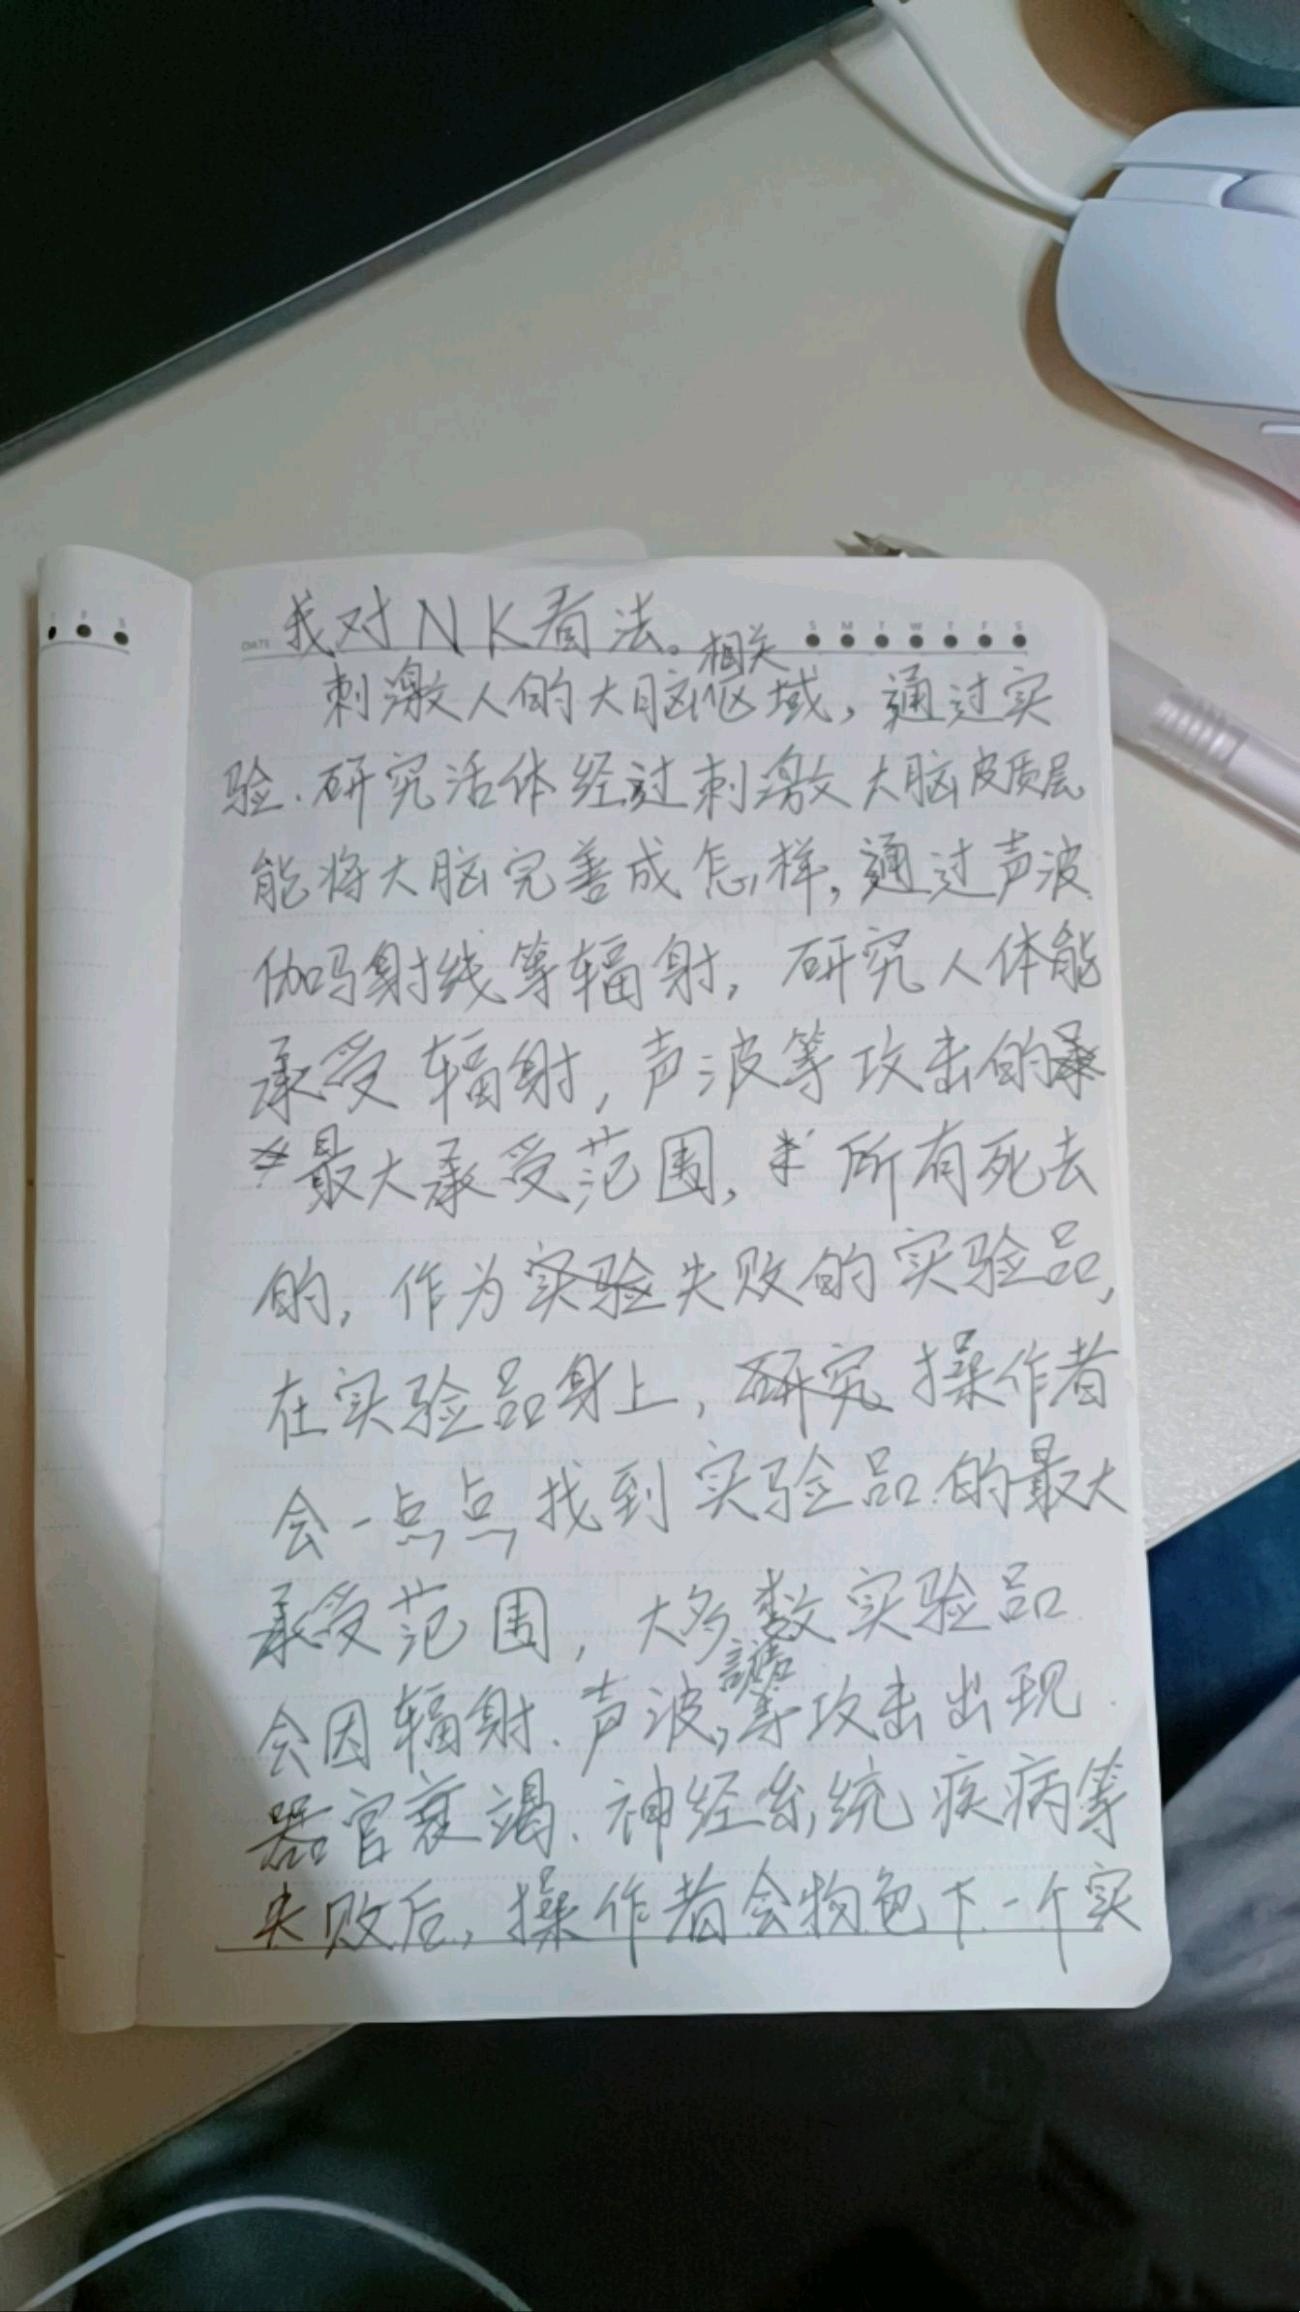 我对NK看法。
DATE
S M T W T F S
相关
刺激人的大脑区域，通过实
验.研究活体经过刺激大脑皮质层
能将大脑完善成怎样，通过声波
伽吗射线等辐射，研究人体能
承受辐射，声波等攻击的
最大承受范围，所有死去
的，作为实验失败的实验品，
在实验品身上，研究操作者
会一点点找到实验品的最大
承受范围，大多数实验品
会因辐射、声波，等攻击出现
器官衰竭、神经系统疾病等
失败后，操作者会物色下一个实